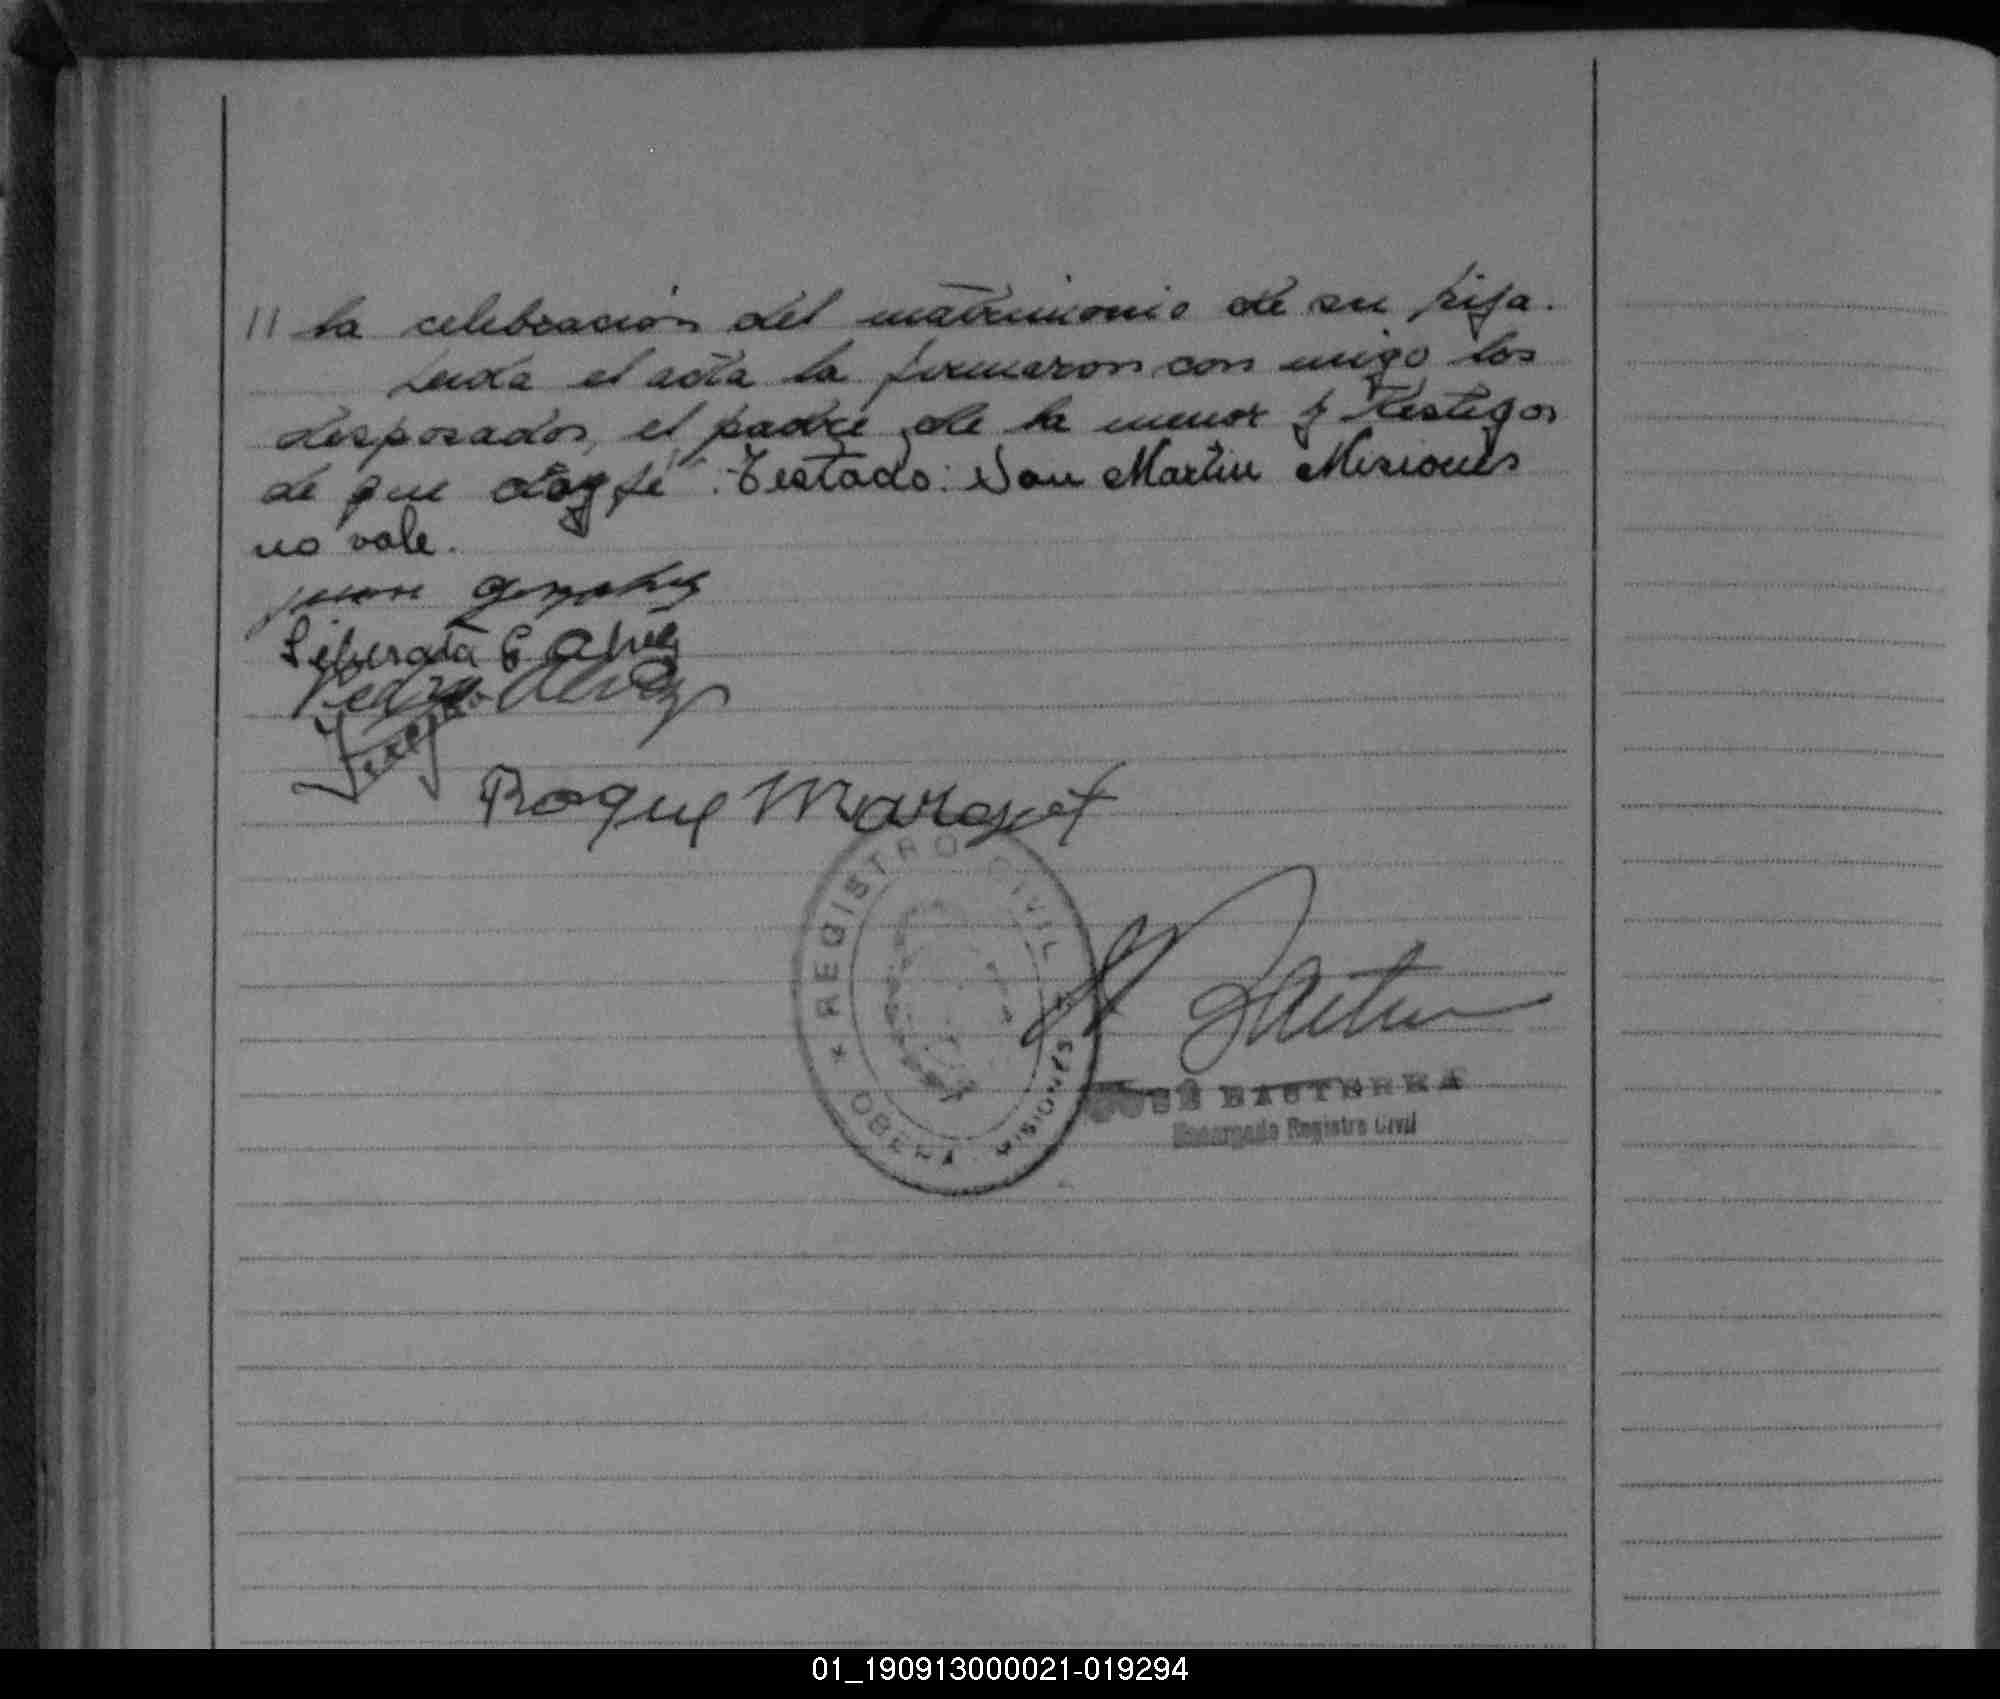 // la celebración del matrimonio de su hija.
Leida el acta la firmaron con migo los
desposados, el padre de la menor y testigos
de que doy fé. Testado: San Martin Misiones
no vale.
Juan Gonzalez
Liberata
Pedro
Roque
REGISTRO CIVIL
* OBERA - MISIONES
JOSÉ BASTERRA
Encargado Registro Civil
01_190913000021-019294